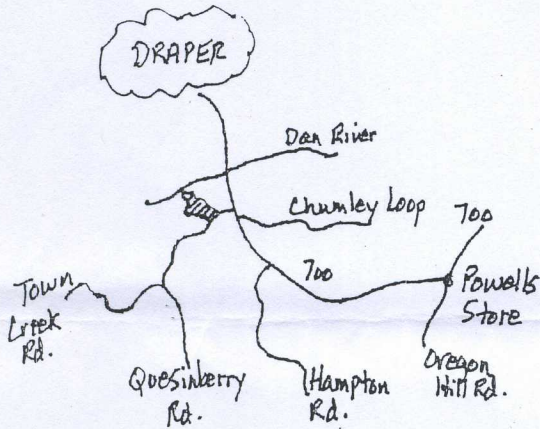 DRAPER
Dan River
Chumley Loop
700
700
Powells
Store
Town
Creek
Rd.
Quesinberry
Rd.
Hampton
Rd.
Oregon
Hill Rd.